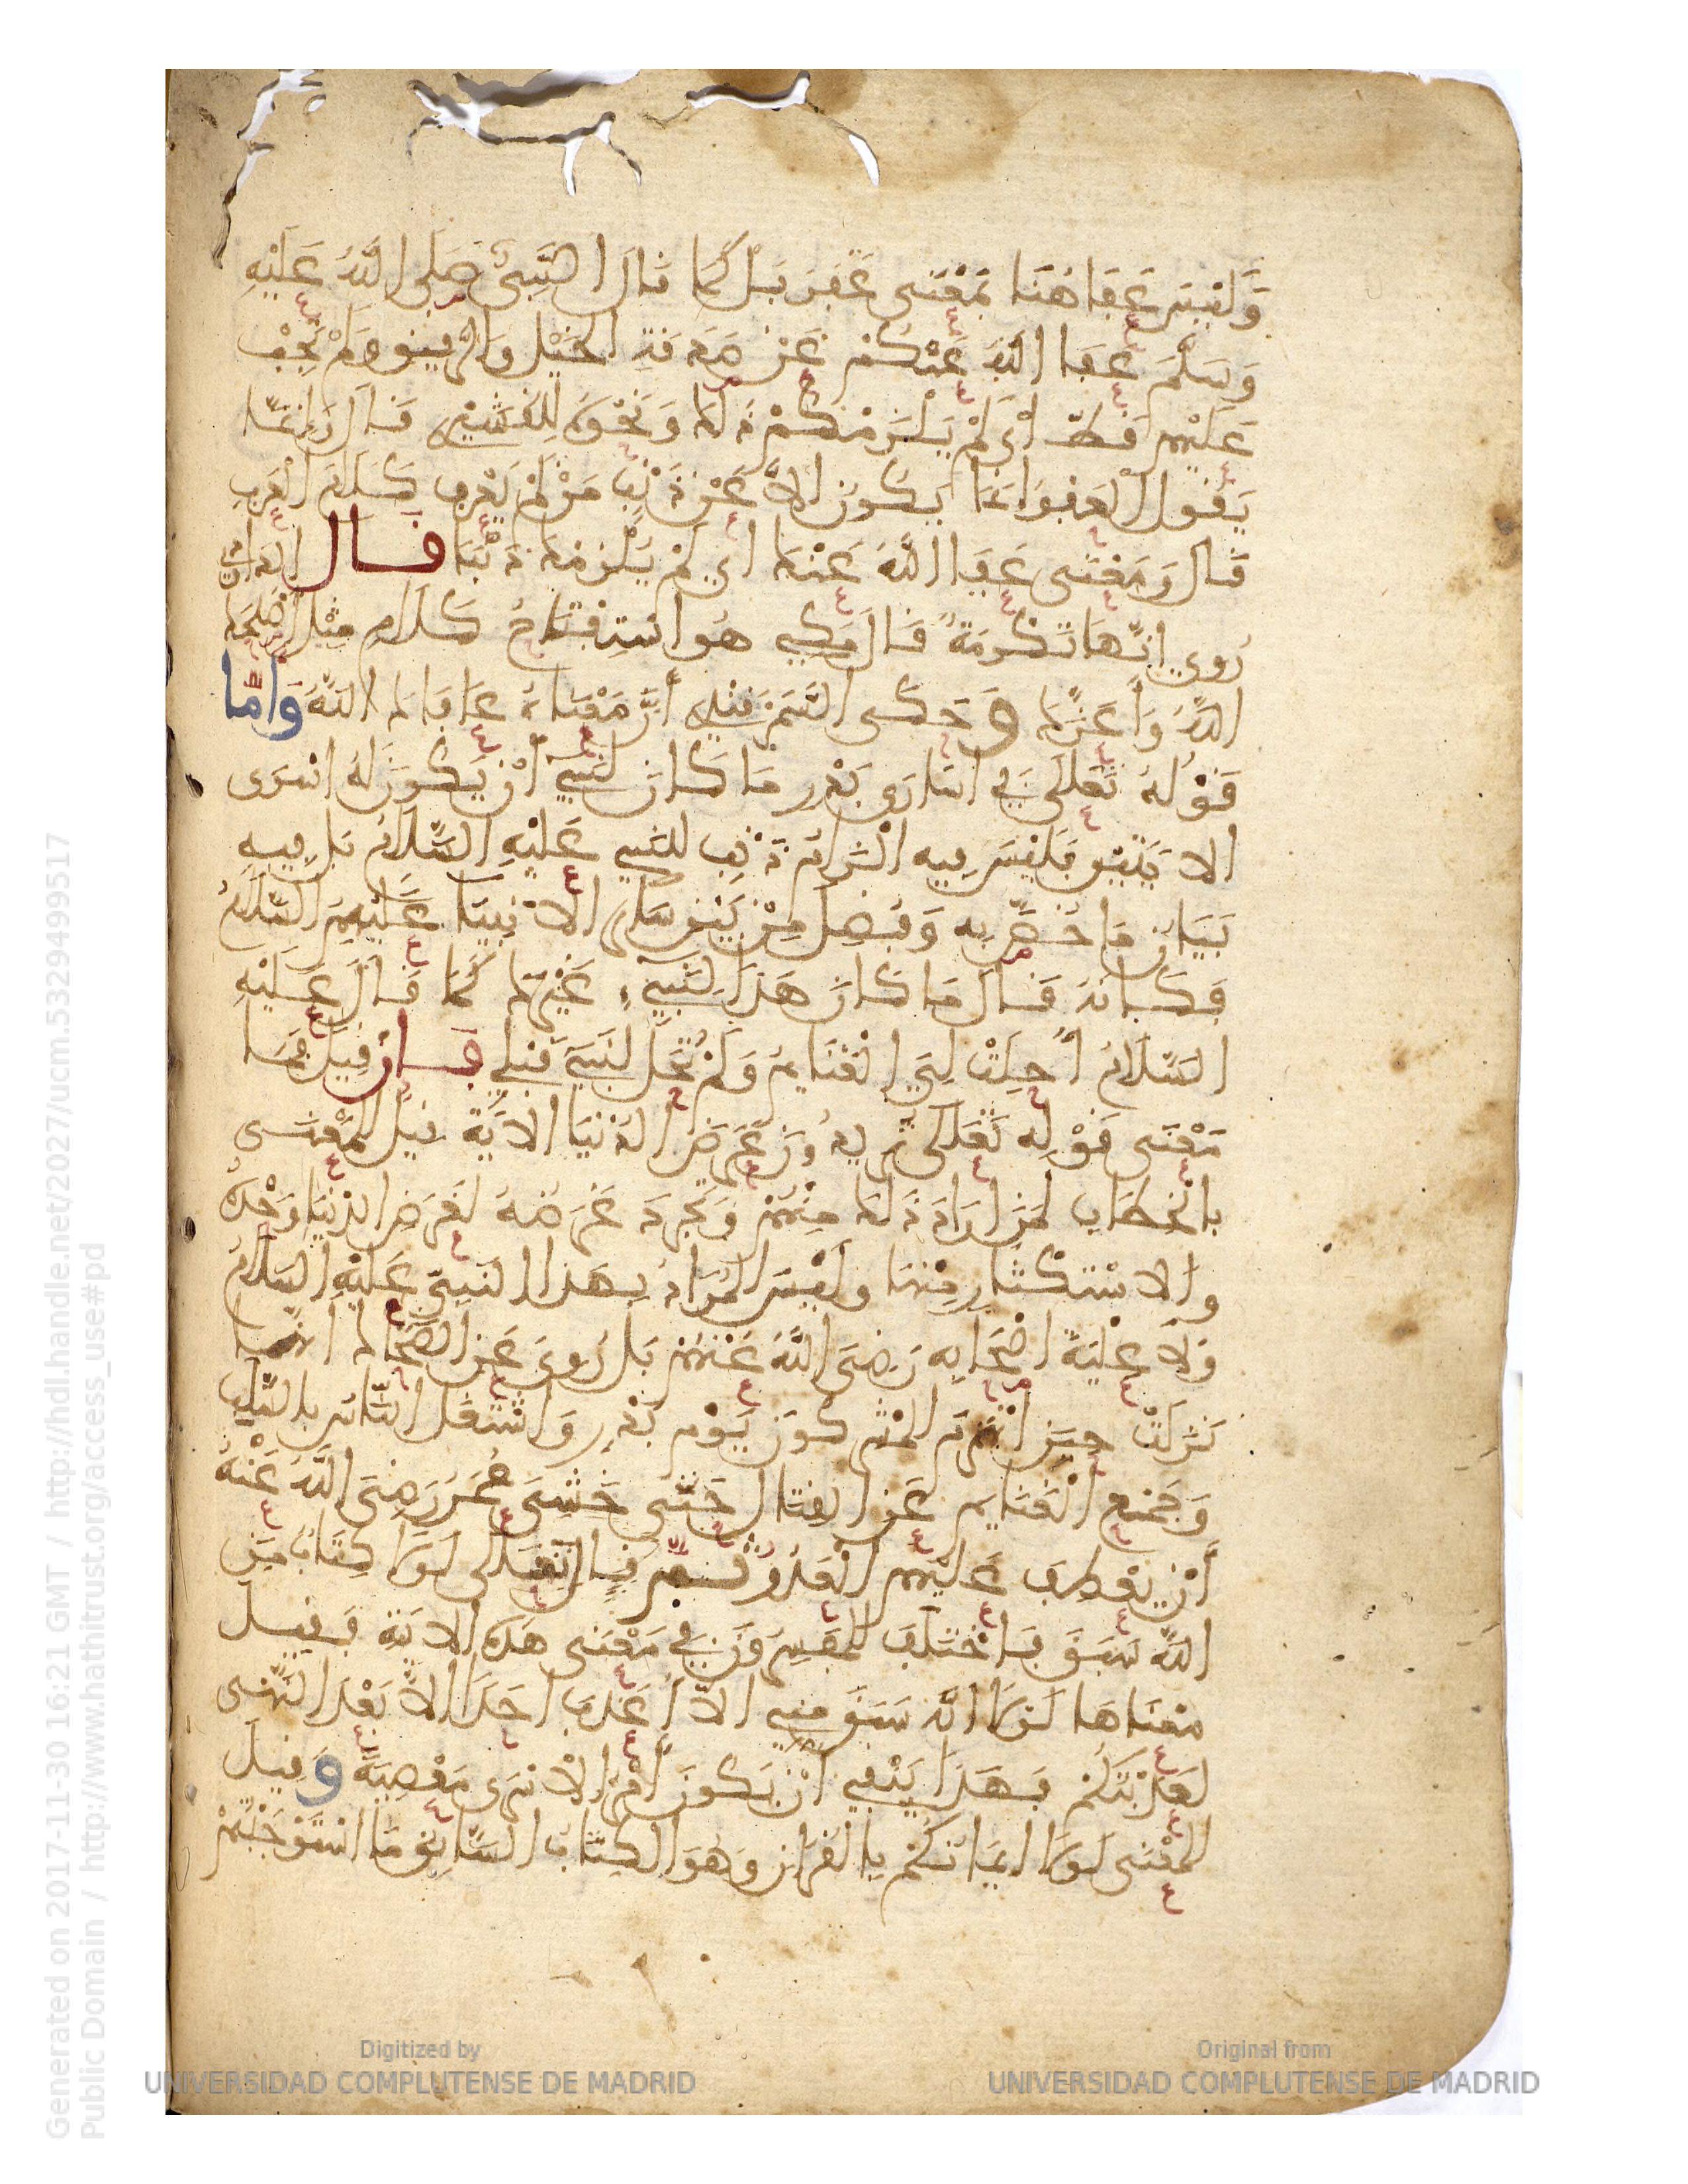 وَلَيْسَ عَفَا هُنَا بِمَعْنَى غَفَرَ بَلْ كَمَا قَالَ النَّبِيُّ صَلَّى اللَّهُ عَلَيْهِ
وَسَلَّمَ عَفَا اللَّهُ عَنْكُمْ عَنْ صَدَقَةِ الْخَيْلِ وَالرَّقِيقِ وَلَمْ تَجِبْ
عَلَيْهِمْ قَطُّ أَيْ لَمْ يَلْزَمْكُمْ ذَلِكَ وَنَحْوُهُ لِلْقُشَيْرِي قَالَ وَإِنَّمَا
يَقُولُ الْعَفْوُ إِنَّمَا يَكُونُ إِلَّا عَنْ ذَنْبٍ مَنْ لَمْ يَعْرِفْ كَلَامَ الْعَرَبِ
قَالَ وَمَعْنَى عَفَا اللَّهُ عَنْكَ أَيْ لَمْ يُلْزِمْكَ ذَنْبًا قَالَ الدَّاوُدِيُّ
رُوِيَ أَنَّهَا تَكْرِمَةٌ قَالَ مَكِّي هُوَ اسْتِفْتَاحُ كَلَامٍ مِثْلُ أَصْلَحَكَ
اللَّهُ وَأَعَزَّكَ وَحَكَى السَّمَرْقَنْدِي أَنَّ مَعْنَاهُ عَافَاكَ اللَّهُ وَأَمَّا
قَوْلُهُ تَعَالَى فِي أُسَارَى بَدْرٍ مَا كَانَ لِنَبِيٍّ أَنْ يَكُونَ لَهُ أَسْرَى
الايَتَيْنِ فَلَيْسَ فِيهِ إِلْزَامُ ذَنْبٍ لِلنَّبِيِّ عَلَيْهِ السَّلَامُ بَلْ فِيهِ
بَيَانُ مَا خُصَّ بِهِ وَفُضِّلَ مِنْ بَيْنِ سَائِرِ الْأَنْبِيَاءِ عَلَيْهِمُ السَّلَامُ
فَكَأَنَّهُ قَالَ مَا كَانَ هَذَا لِنَبِيٍّ غَيْرِكَ كَمَا قَالَ عَلَيْهِ
السَّلَامُ أُحِلَّتْ لِيَ الْغَنَائِمُ وَلَمْ تَحِلَّ لِنَبِيٍّ قَبْلِي فَإِنْ قِيلَ فَمَا
مَعْنَى قَوْلِهِ تَعَالَى تُرِيدُونَ عَرَضَ الدُّنْيَا الْآيَةَ قِيلَ الْمَعْنَى
بِالْخِطَابِ لِمَنْ أَرَادَ ذَلِكَ مِنْهُمْ وَتَجَرَّدَ غَرَضُهُ لِعَرَضِ الدُّنْيَا وَحْدَهُ
وَالِاسْتِكْثَارِ مِنْهَا وَلَيْسَ الْمُرَادُ بِهَذَا النَّبِيَّ عَلَيْهِ السَّلَامُ
وَلَا عِلْيَةَ أَصْحَابِهِ رَضِيَ اللَّهُ عَنْهُمْ بَلْ رُوِيَ عَنِ الضَّحَّاكِ أَنَّهَا
نَزَلَتْ حِينَ انْهَزَمَ الْمُشْرِكُونَ يَوْمَ بَدْرٍ وَاشْتَغَلَ النَّاسُ بِالسَّلَبِ
وَجَمْعِ الْغَنَائِمِ عَنِ الْقِتَالِ حَتَّى خَشِيَ عُمَرُ رَضِيَ اللَّهُ عَنْهُ
أَنْ يَعْطِفَ عَلَيْهِمُ الْعَدُوُّ ثُمَّ قَالَ تَعَالَى لَوْلَا كِتَابٌ مِنَ
اللَّهِ سَبَقَ فَاخْتَلَفَ الْمُفَسِّرُونَ فِي مَعْنَى هَذِهِ الْآيَةِ فَقِيلَ
مَعْنَاهَا لَوْلَا أَنَّهُ سَبَقَ مِنِّي أَلَّا أُعَذِّبَ أَحَدًا إِلَّا بَعْدَ النَّهْيِ
لَعَذَّبْتُكُمْ فَهَذَا يَنْفِي أَنْ يَكُونَ أَمْرُ الْأَسْرَى مَعْصِيَةً وَقِيلَ
الْمَعْنَى لَوْلَا إِيمَانُكُمْ بِالْقُرْآنِ وَهُوَ الْكِتَابُ السَّابِقُ مَا اسْتَوْجَبْتُمْ
Generated on 2017-11-30 16:21 GMT / http://hdl.handle.net/2027/ucm.5329499517
Public Domain / http://www.hathitrust.org/access_use#pd
Digitized by
UNIVERSIDAD COMPLUTENSE DE MADRID
Original from
UNIVERSIDAD COMPLUTENSE DE MADRID